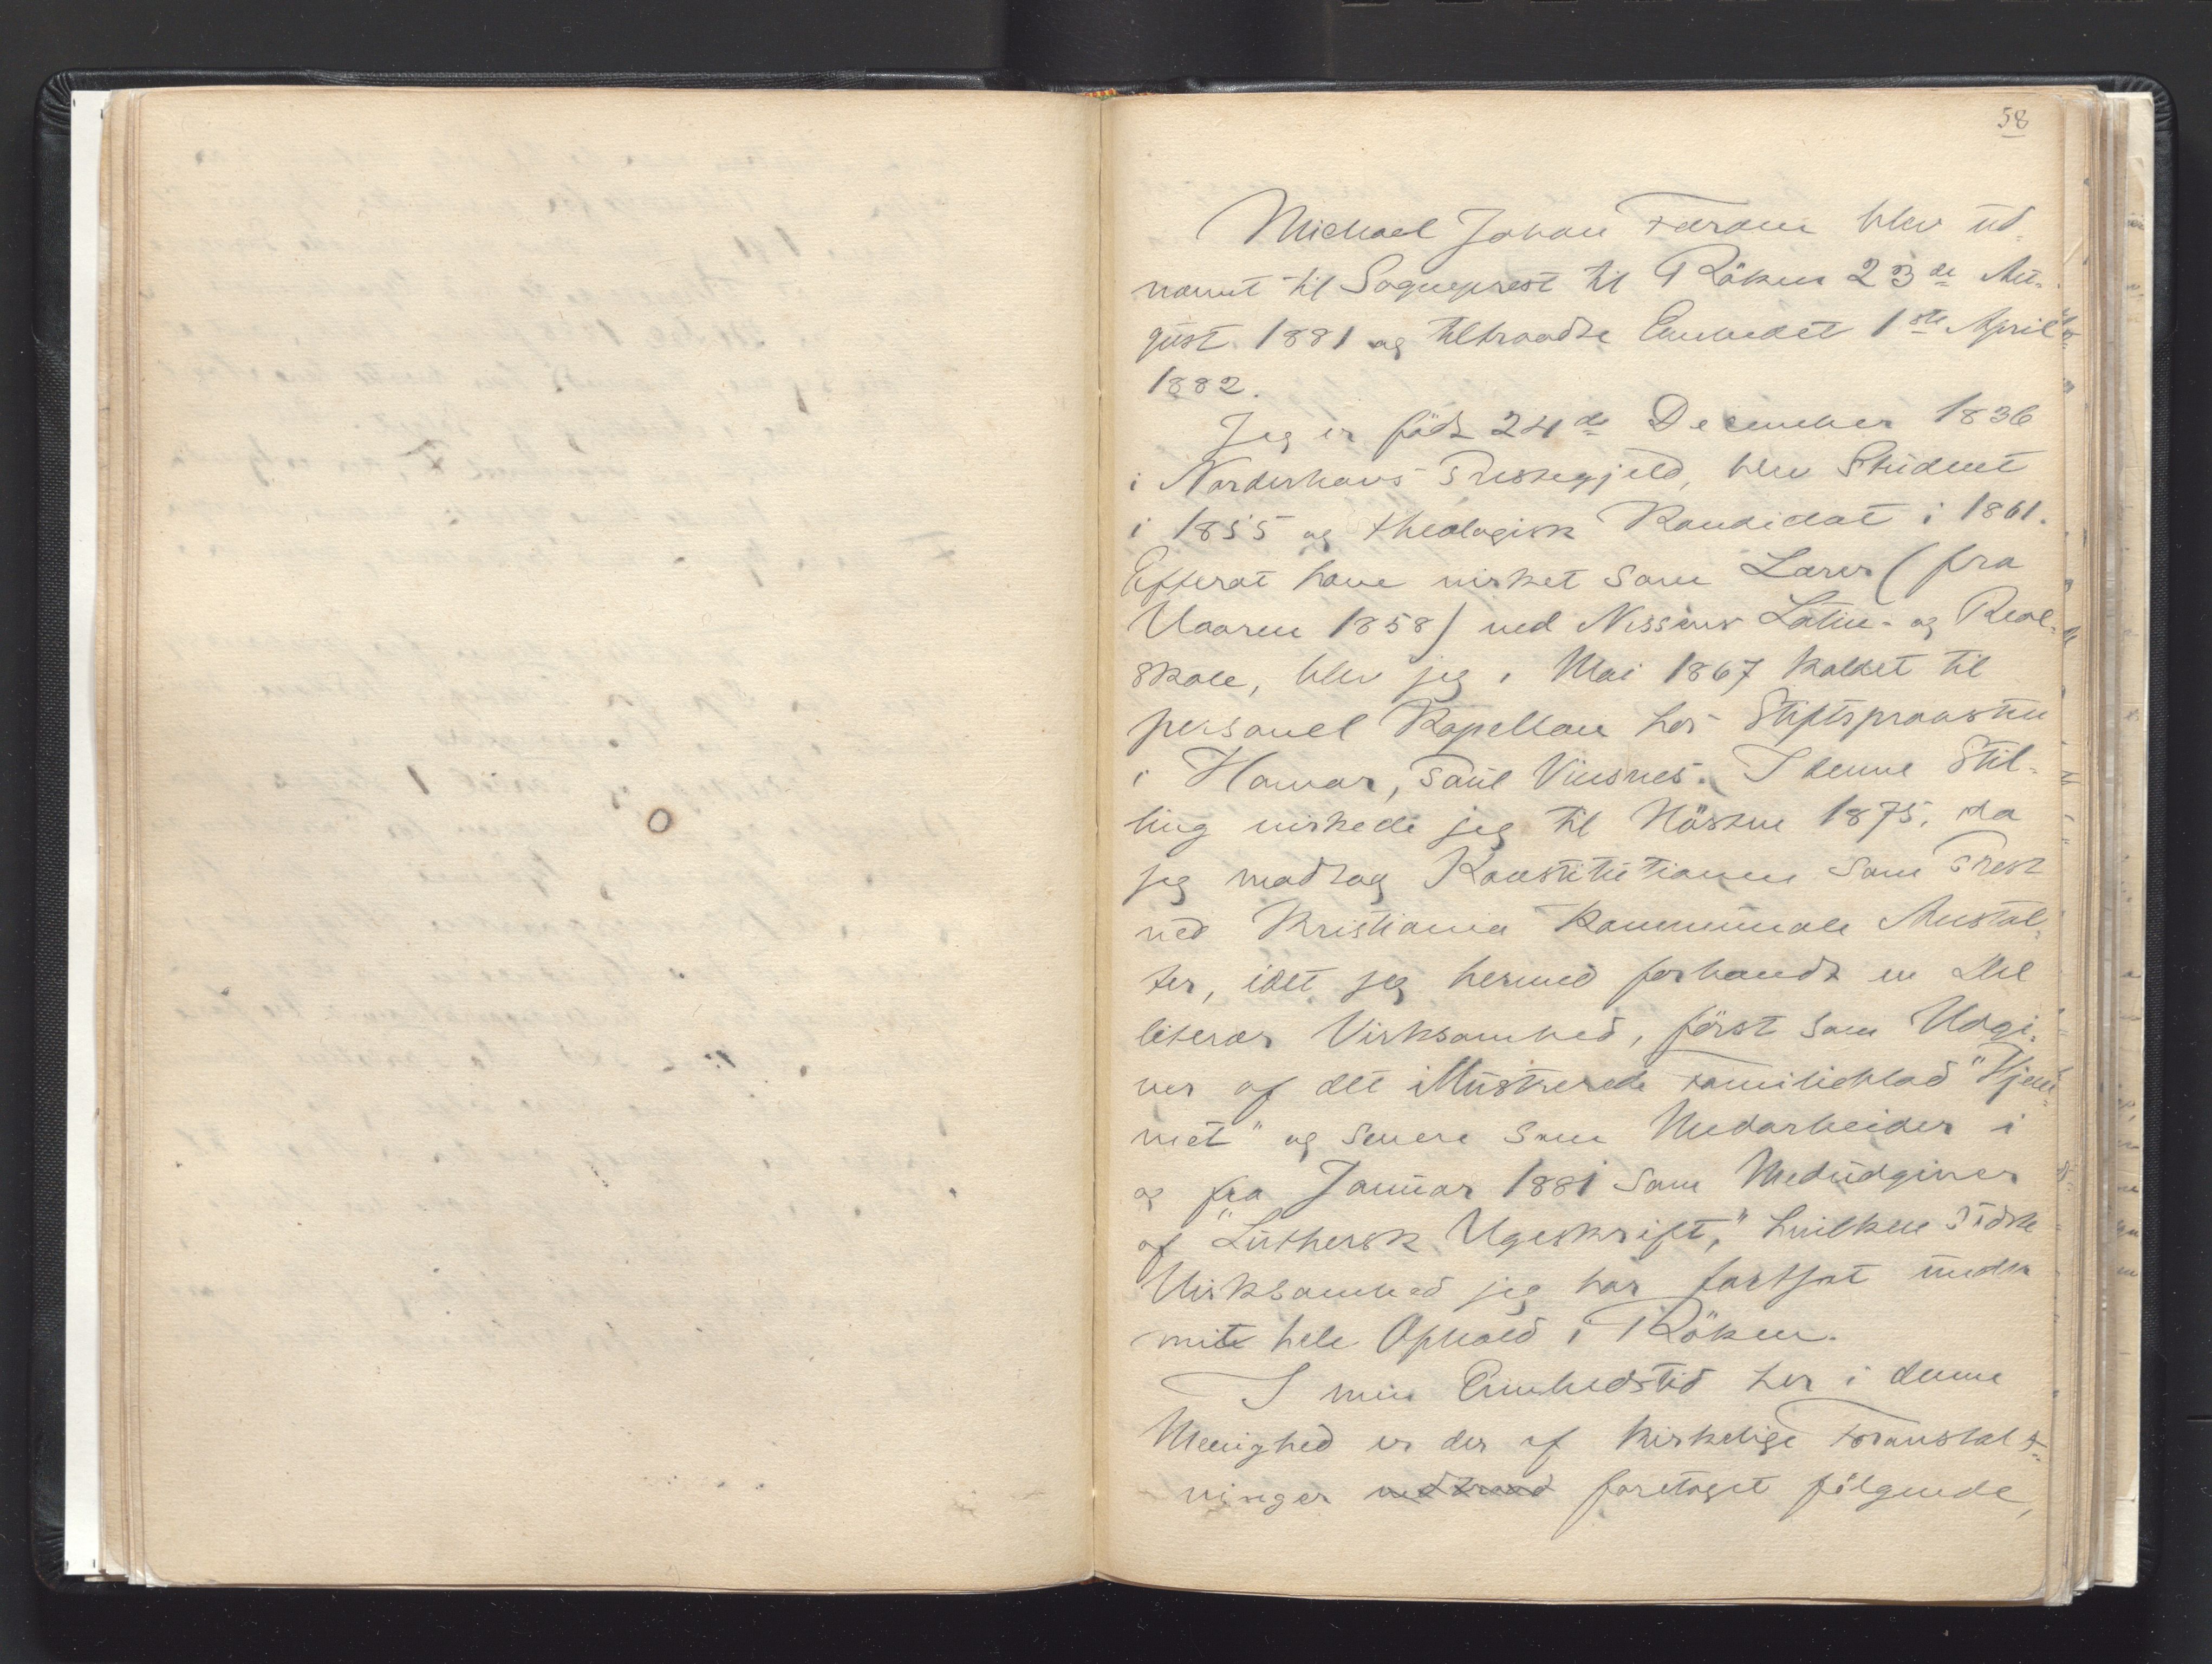 58
Michael Johan Færden blev ud-
nævnt til Sogneprest til Röken 23de Au-
gust 1881 og tiltraadte Embedet 1ste April
1882.
Jeg er födt 24de December 1836
i Norderhovs Prestegjeld, blev Student
i 1855 og theologisk Kandidat i 1861.
Efterat have virket som Lærer (fra
Vaaren 1858) ved Nissens Latin- og Real-
skole, blev jeg i Mai 1867 kaldet til
personel Kapellan hos Stiftsprovsten
i Hamar, Paul Vinsnes. I denne Stil-
ling virkede jeg til Hösten 1875, da
jeg modtog Konstitutionen som Prest
ved Kristiania kommunale Anstal-
ter, idet jeg hermed forbandt en Del
literær Virksomhed, först som Udgi-
ver af det illustrerede Familieblad "Hjem-
met" og senere som Medarbeider i
og fra Januar 1881 som Medudgiver
af "Luthersk Ugeskrift," hvilken sidste
Virksomhed jeg har fortsat under
mit hele Ophold i Röken.
I min Embedstid her i denne
Menighed er der af kirkelige Foranstalt-
ninger foretaget fölgende,